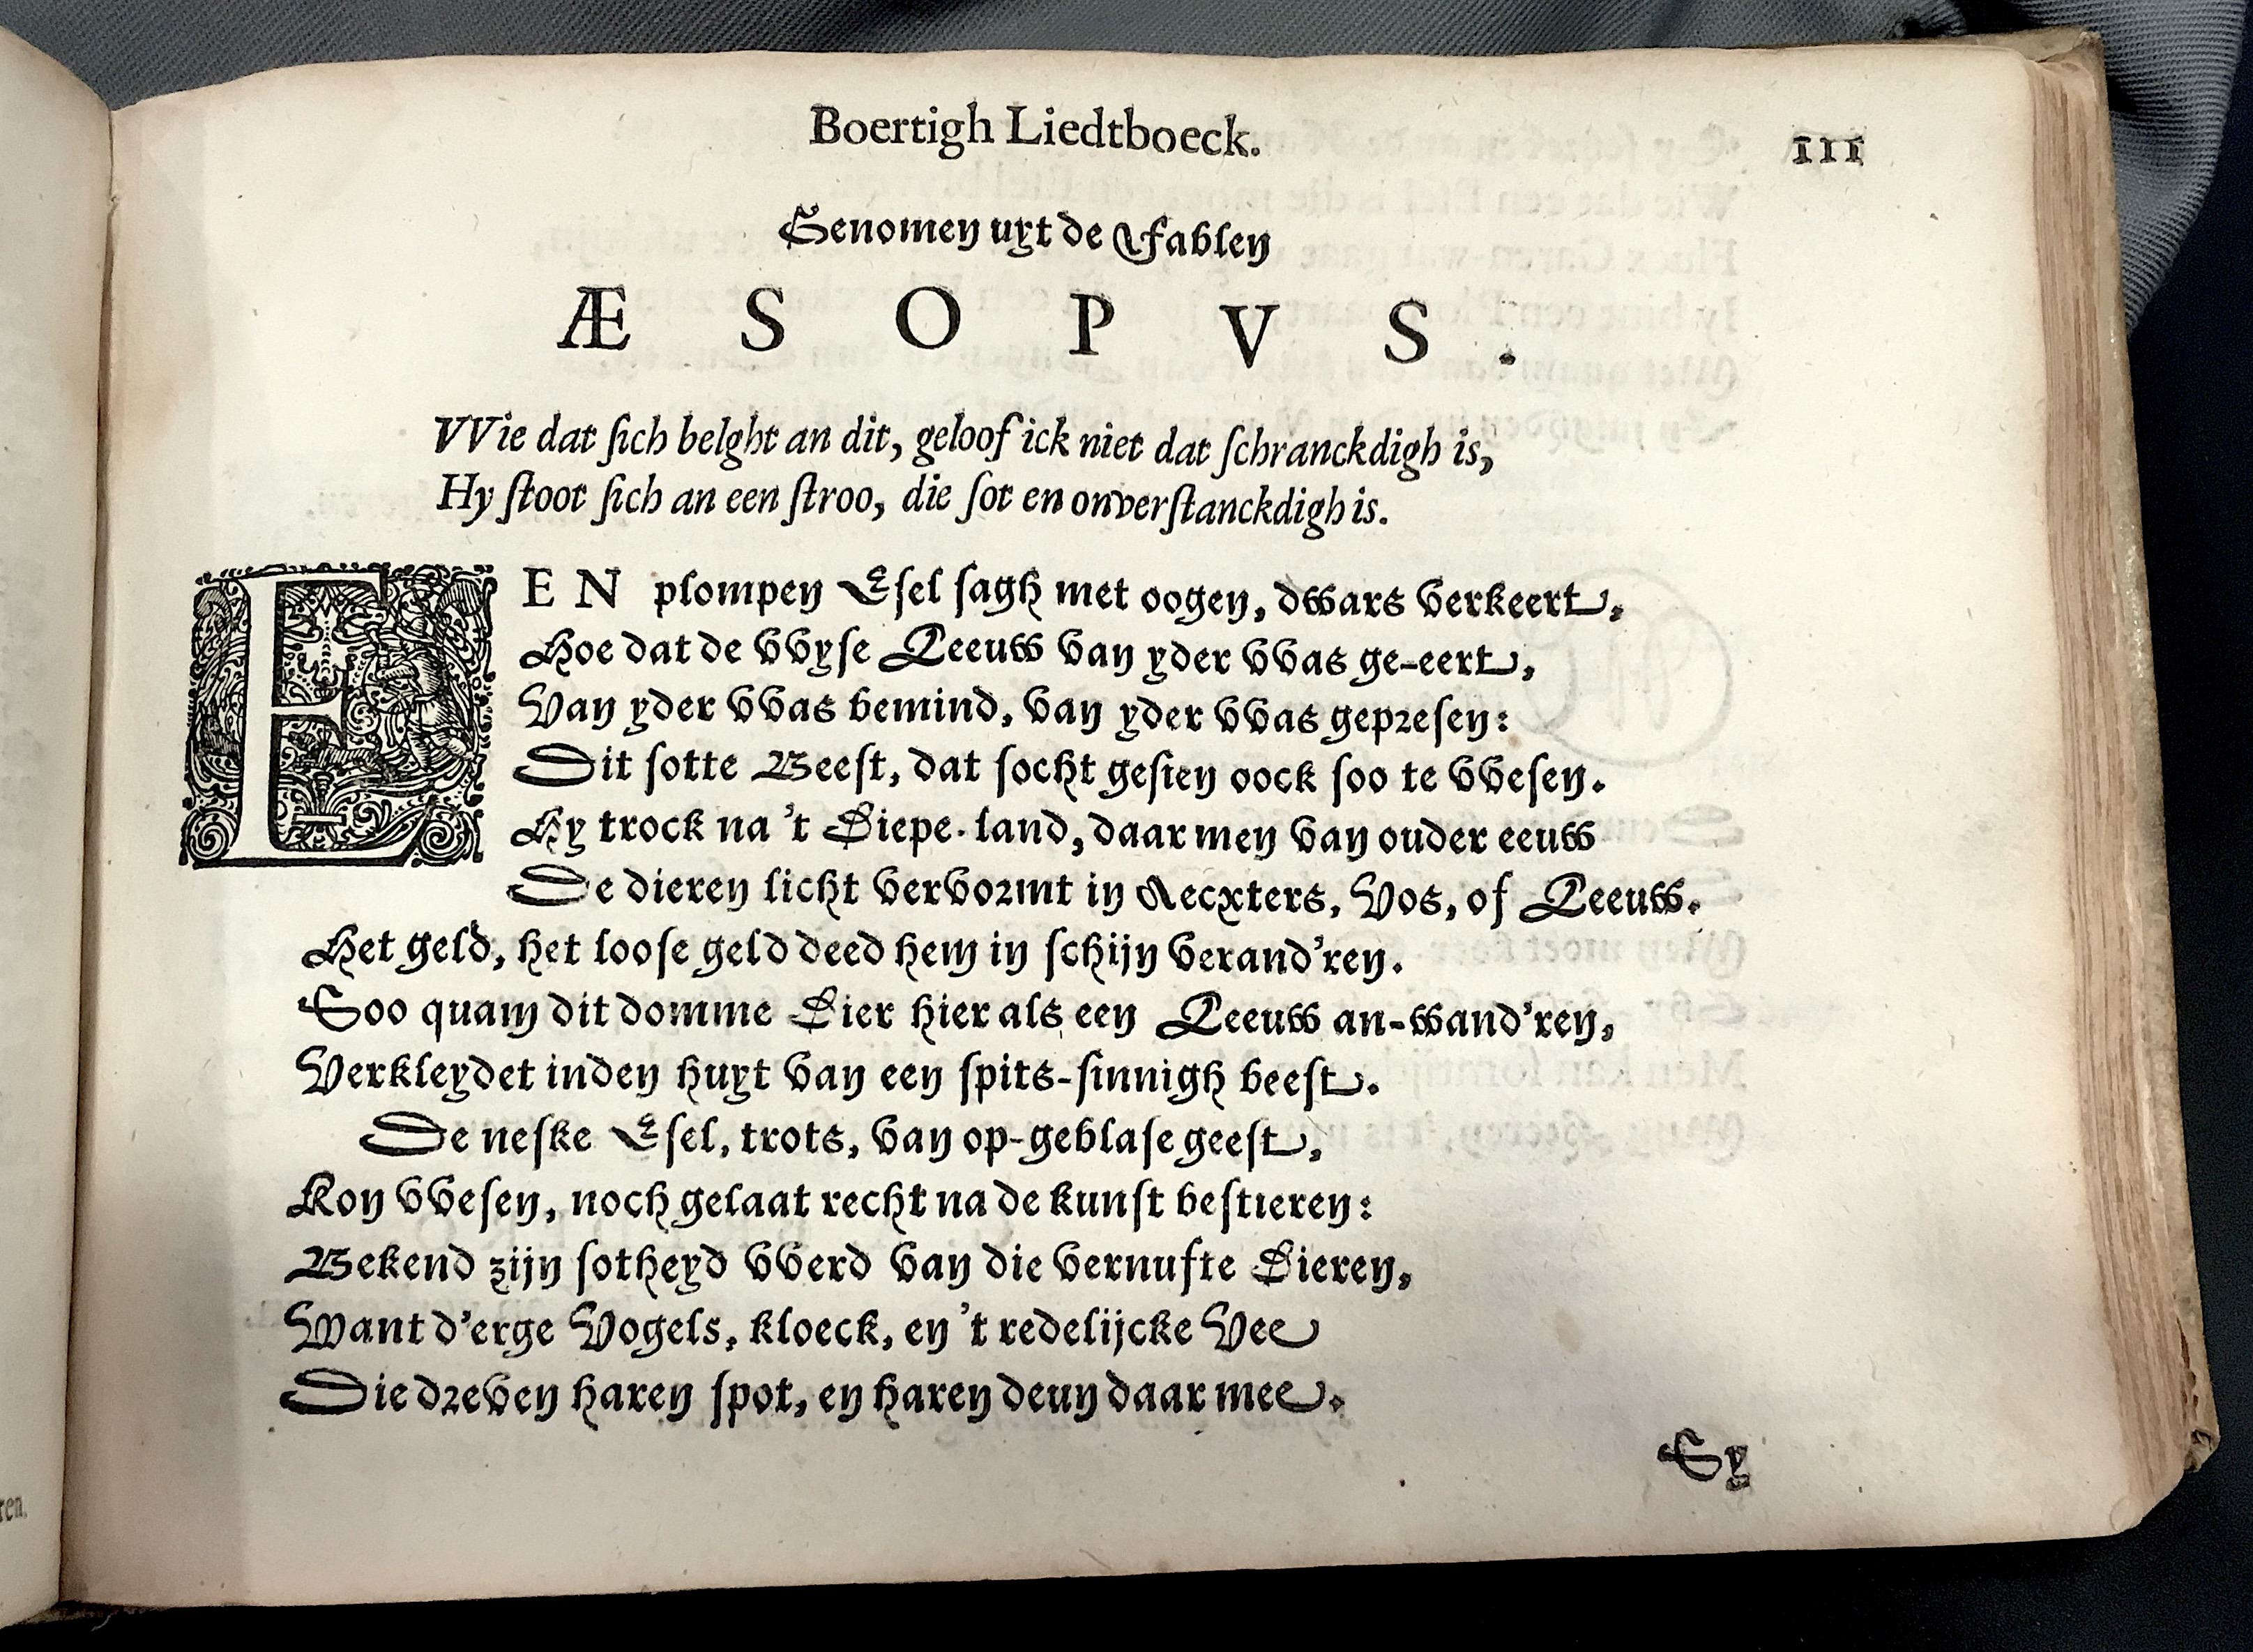 Boertigh Liedtboeck.
111
Genomen uyt de Fablen
ÆSOPVS.
VVie dat sich belght an dit, geloof ick niet dat schranckdigh is,
Hy stoot sich an een stroo, die sot en onverstanckdigh is.
EEN plompen Esel sagh met oogen, dwars verkeert,
Hoe dat de vvyse Leeuw van yder vvas ge-eert,
Van yder vvas bemind, van yder vvas gepresen:
Dit sotte Beest, dat socht gesien oock soo te vvesen.
Hy trock na 't Diepe-land, daar men van ouder eeuw
De dieren licht vervormt in Aecxters, Vos, of Leeuw.
Het geld, het loose geld deed hem in schijn verand'ren.
Soo quam dit domme Dier hier als een Leeuw an-wand'ren,
Verkleydet inden huyt van een spits-sinnigh beest.
De neske Esel, trots, van op-geblase geest,
Kon vvesen, noch gelaat recht na de kunst bestieren:
Bekend zijn sotheyd vverd van die vernufte Dieren,
Want d'erge Vogels, kloeck, en 't redelijcke Vee
Die dreven haren spot, en haren deun daar mee.
Sy
ren.